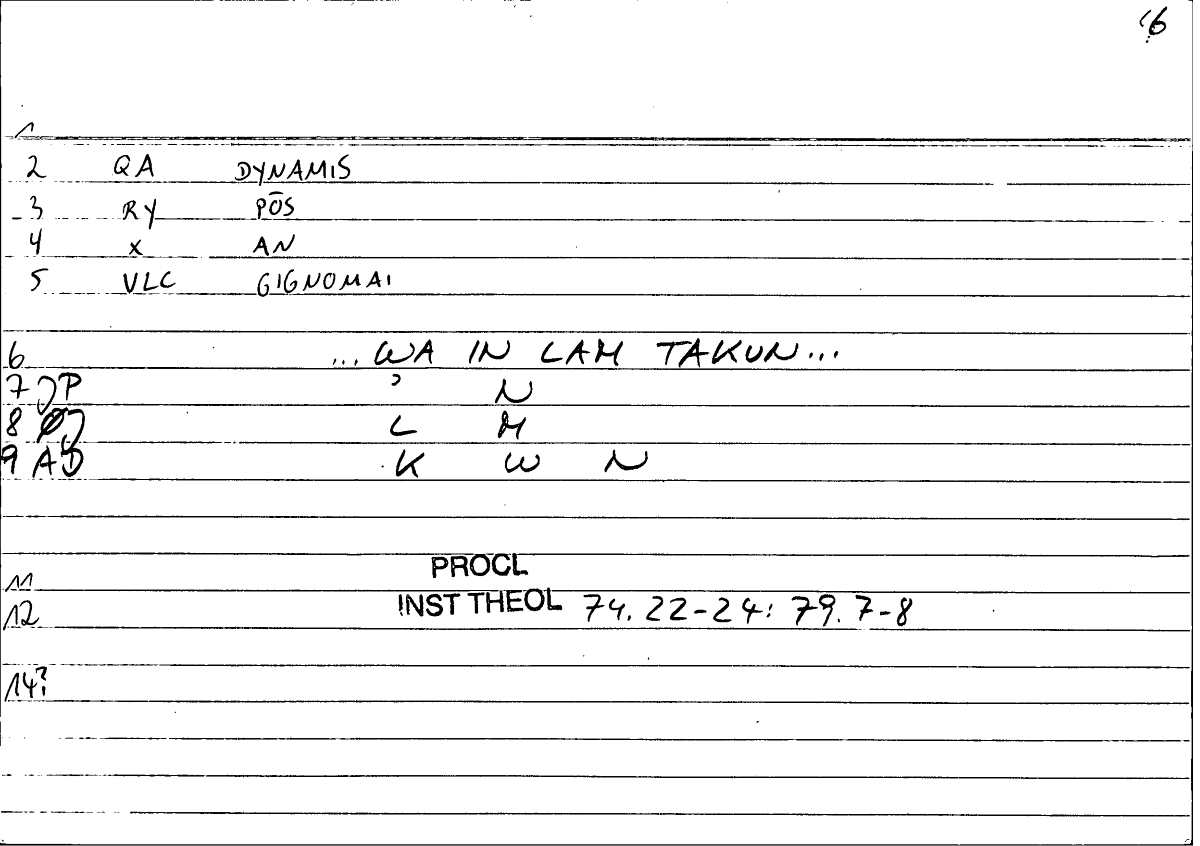 6
1
2 QA DYNAMIS
3 RY PŌS
4 X AN
5 VLC GIGNOMAI
6 ...WA IN LAM TAKUN...
7 JP ʾ N
8 J L M
9 AD K W N
11 PROCL
12 INST THEOL 74. 22-24: 79. 7-8
14?